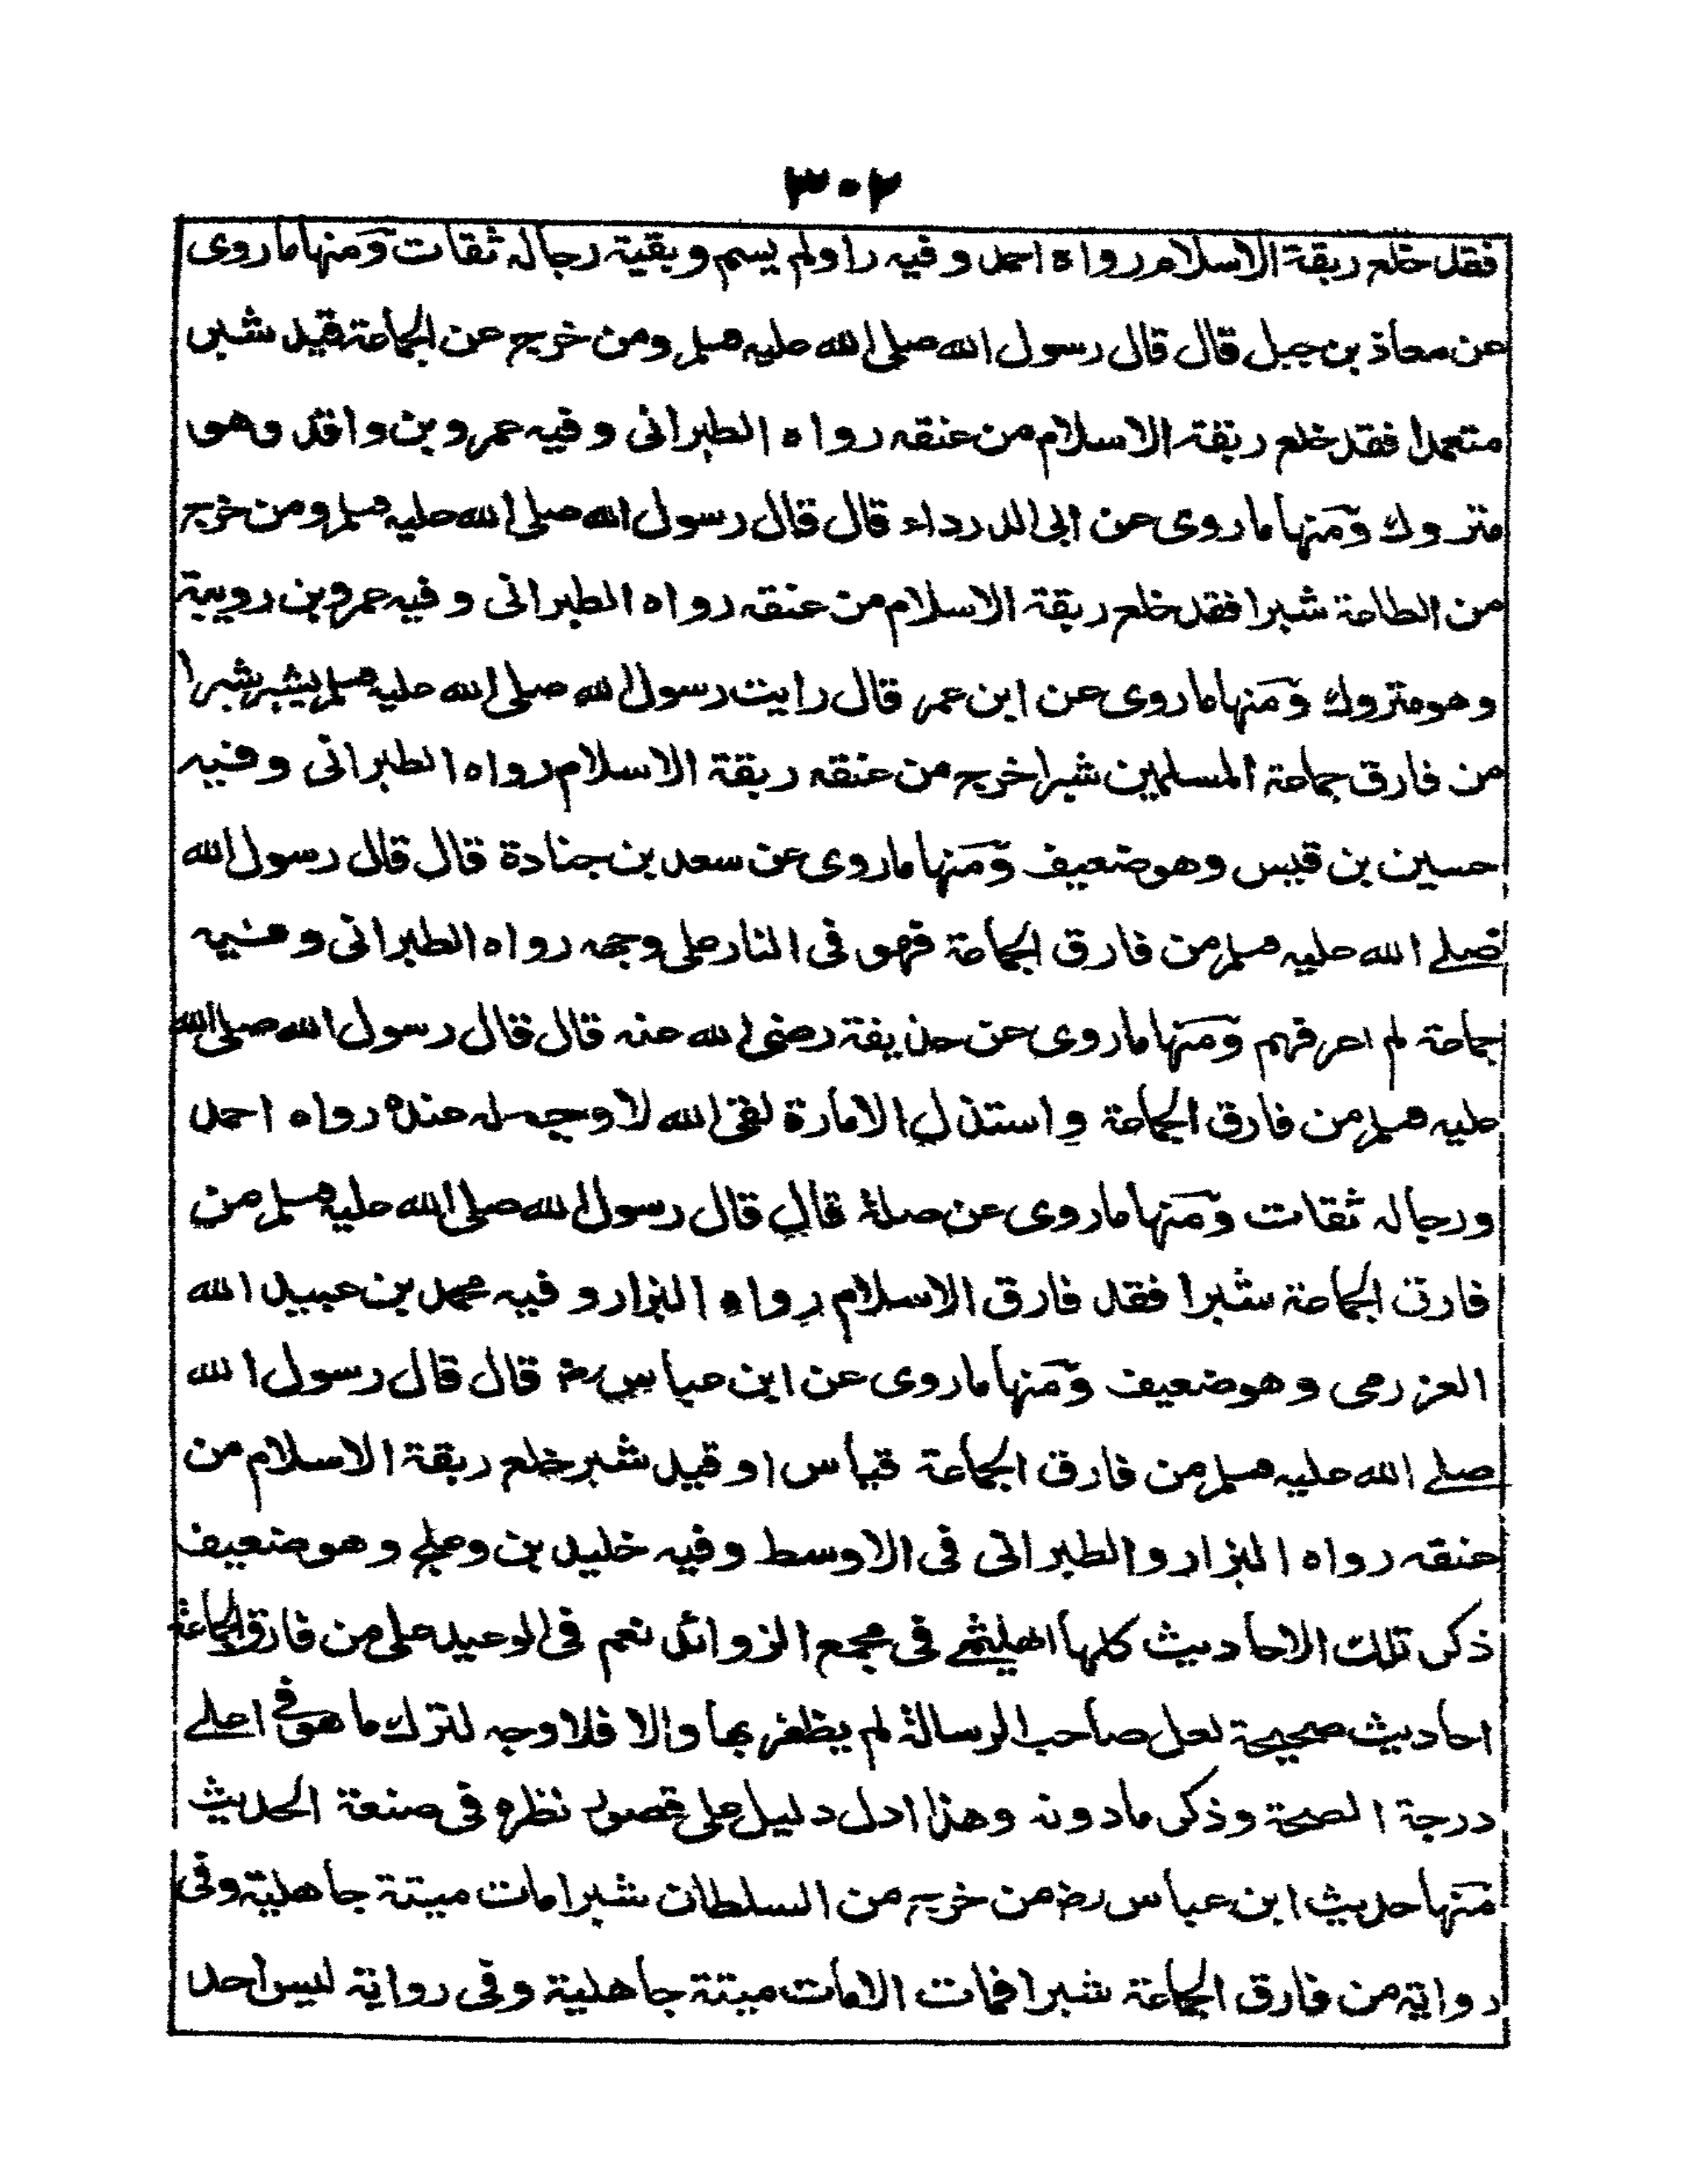 ٣٠٢
فقد خلع ربقة الاسلام رواه احمد وفيه راو لم يسم وبقية رجاله ثقات ومنها ما روى
عن معاذ بن جبل قال قال رسول الله صلى الله عليه وسلم ومن خرج عن الجماعة قيد شبر
متعمدا فقد خلع ربقة الاسلام من عنقه رواه الطبرانى وفيه عمرو بن واقد وهو
متروك ومنها ما روى عن ابى الدرداء قال قال رسول الله صلى الله عليه وسلم ومن خرج
من الطاعة شبرا فقد خلع ربقة الاسلام من عنقه رواه الطبرانى وفيه عمرو بن رويبة
وهو متروك ومنها ما روى عن ابن عمر قال رايت رسول الله صلى الله عليه وسلم يشبر شبرا
من فارق جماعة المسلمين شبرا خرج من عنقه ربقة الاسلام رواه الطبرانى وفيه
حسين بن قيس وهو ضعيف ومنها ما روى عن سعد بن جنادة قال قال رسول الله
صلے الله عليه وسلم من فارق الجماعة فهو فى النار على وجهه رواه الطبرانى وفيه
جماعة لم اعرفهم ومنها ما روى عن حذيفة رضى الله عنه قال قال رسول الله صلى الله
عليه وسلم من فارق الجماعة واستذل الامارة لقى الله لا وجه له عنده رواه احمد
ورجاله ثقات ومنها ما روى عن صلة قال قال رسول الله صلى الله عليه وسلم من
فارق الجماعة شبرا فقد فارق الاسلام رواه البزار وفيه محمد بن عبيد الله
العزرمى وهو ضعيف ومنها ما روى عن ابن عباس رض قال قال رسول الله
صلے الله عليه وسلم من فارق الجماعة قياس او قيد شبر خلع ربقة الاسلام من
عنقه رواه البزار والطبرانى فى الاوسط وفيه خليد بن دعلج وهو ضعيف
ذكر تلك الاحاديث كلها الهيثمے فى مجمع الزوائد نعم فى الوعيد على من فارق الجماعة
احاديث صحيحة لعل صاحب الرسالة لم يظفر بها والا فلا وجه لترك ما هو فے اعلے
درجة الصحة وذكر ما دونه وهذا ادل دليل على قصور نظره فى صنعة الحديث
منها حديث ابن عباس رض من خرج من السلطان شبرا مات ميتة جاهلية وفى
رواية من فارق الجماعة شبرا فمات الامات ميتة جاهلية وفى رواية ليس احد